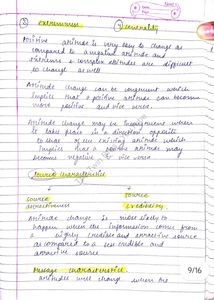 ③ extremeness ④ centrality
Positive attitude is very easy to change as
compared to a negative attitude and
extremes & complex attitudes are difficult
to change as well
Attitude change can be congruent which
implies that a positive attitude can become
more positive and vice versa.
Attitude change may be incongruent when
it takes place in a direction opposite
to that of the existing attitude which
implies that a positive attitude may
become negative & vice versa
Source characteristics
source source
attractiveness credibility
Attitude change is more likely to
happen when the information comes from
highly credible and attractive source
as compared to a less credible and
attractive source
Message characteristics 9/16
Attitudes will change when the